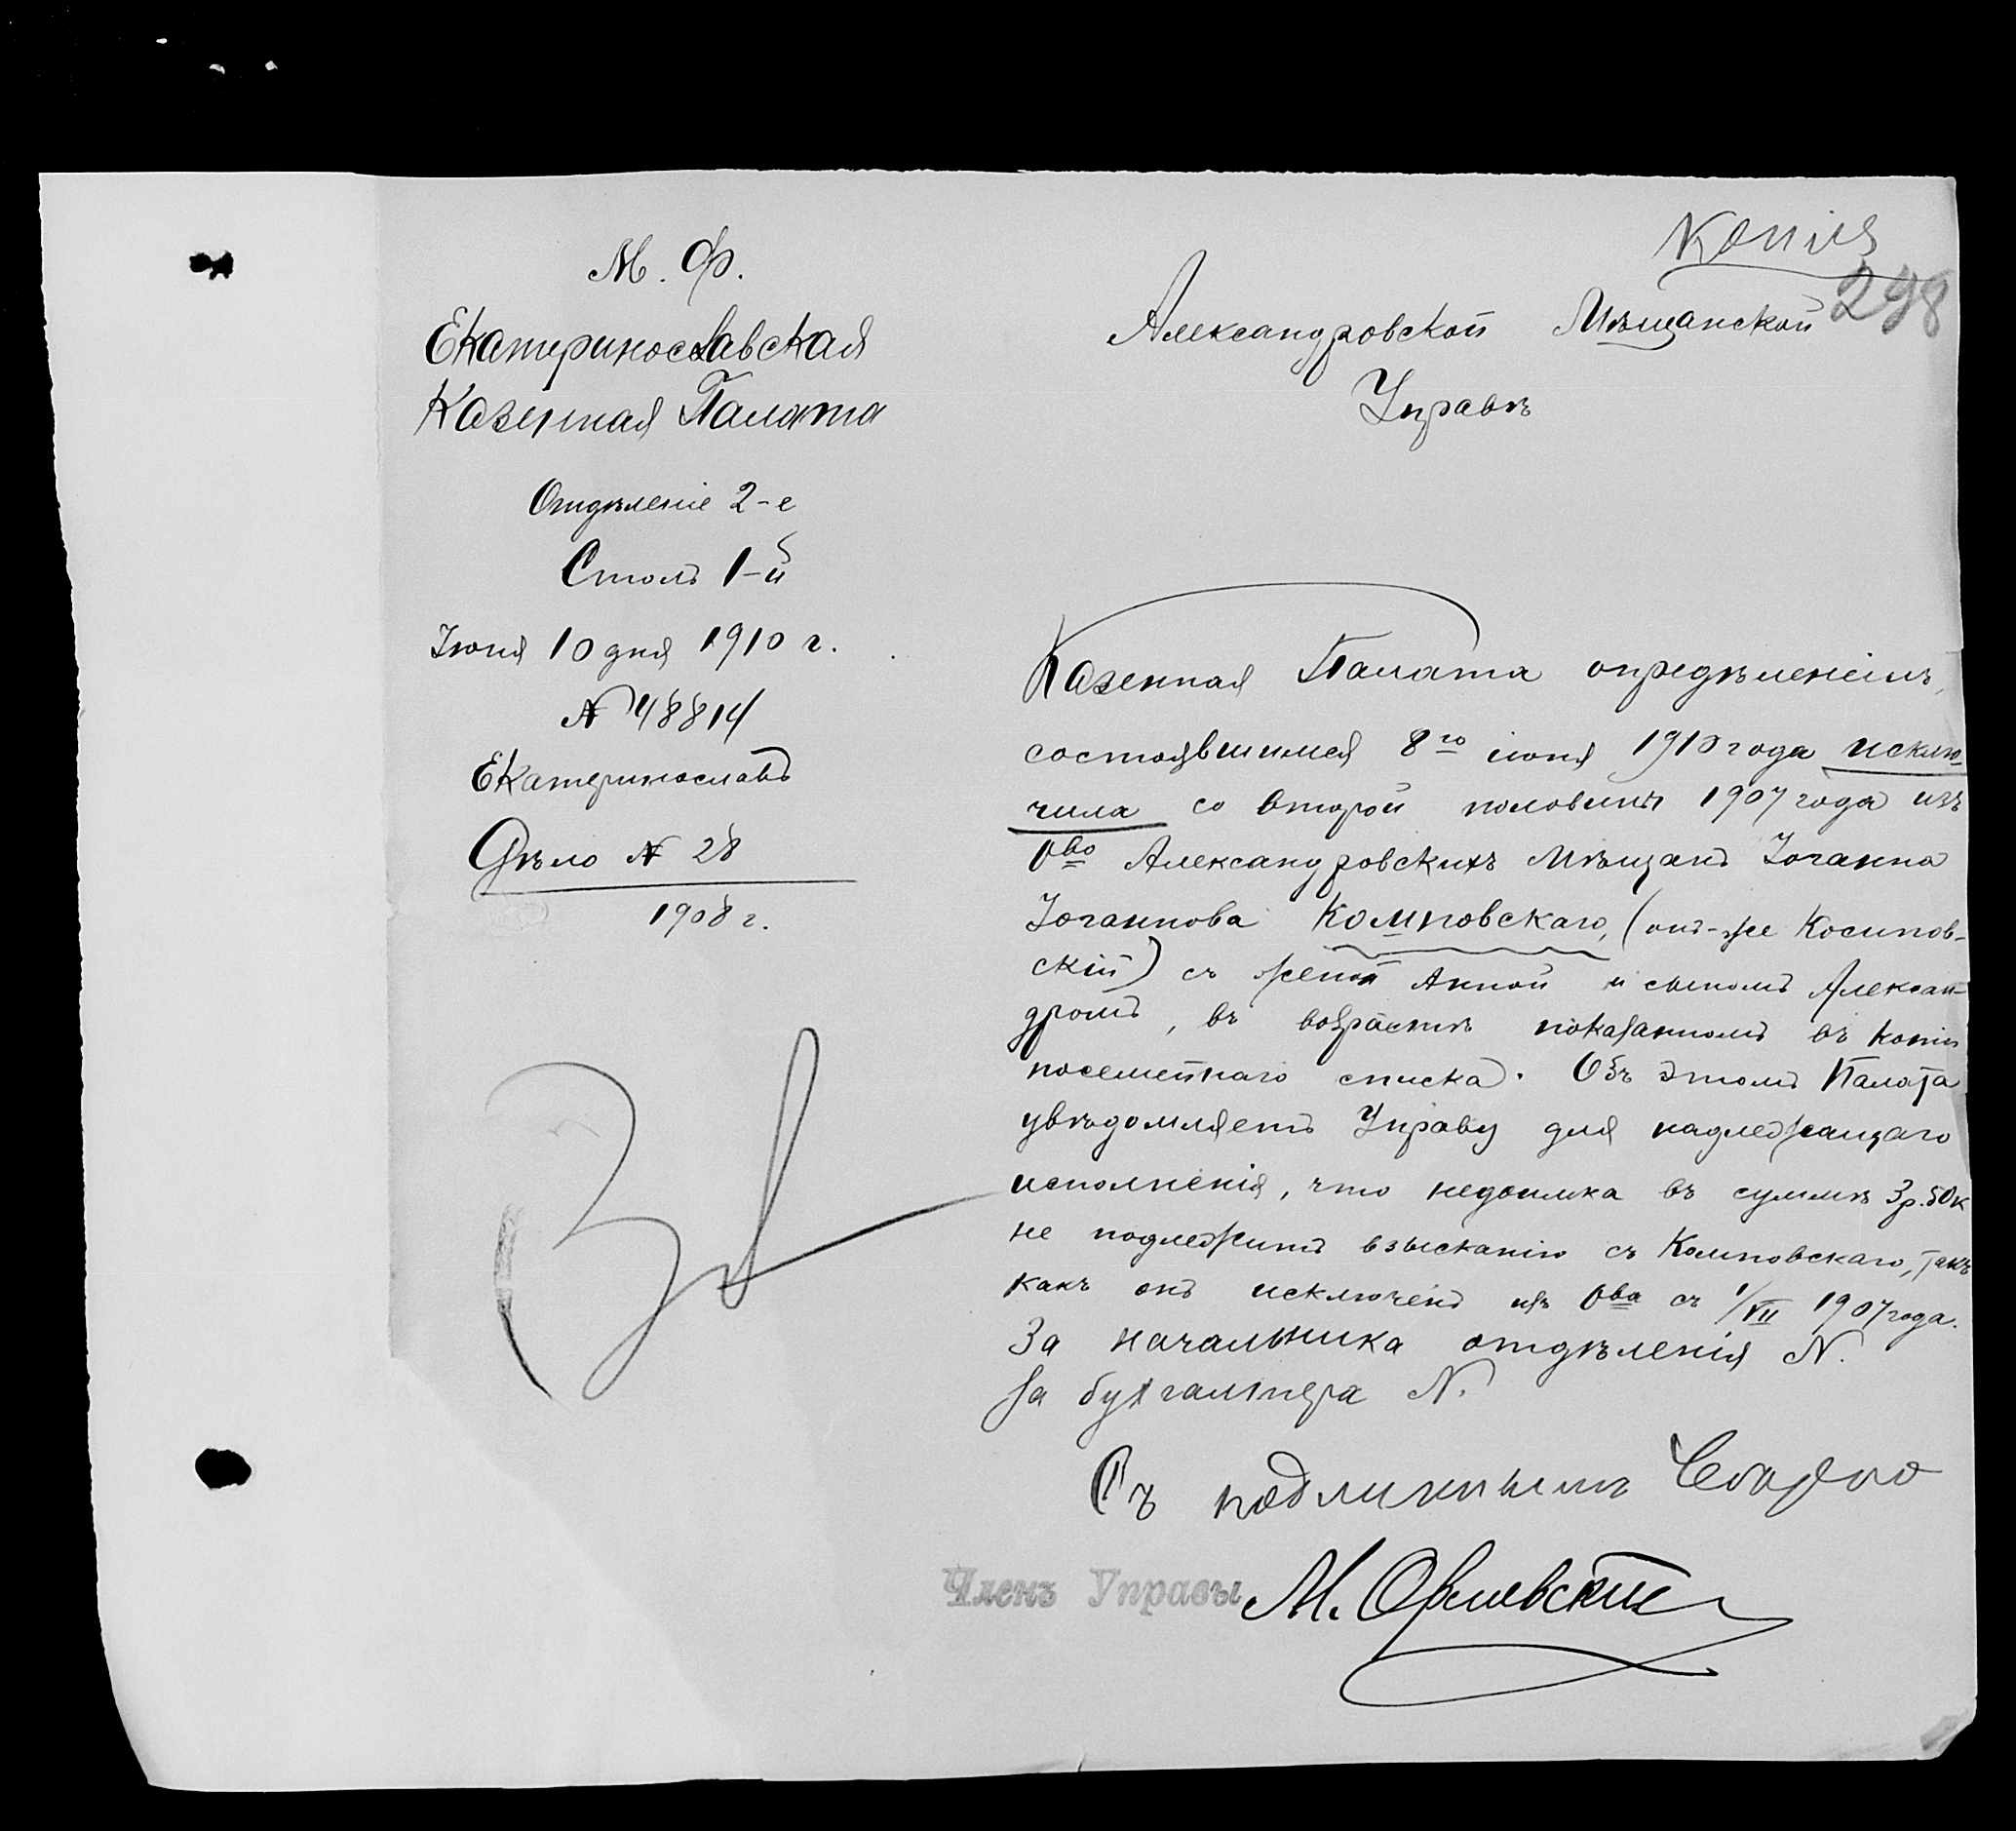 М. Ф.
Екатеринославская
Казенная Палата
Отдѣленіе 2-е
Столъ 1-й
Іюня 10 дня 1910 г.
№ 48814
Екатеринославъ
Дѣло № 28
1908 г.
Копія
298
Александровской Мѣщанской
Управѣ
Казенная Палата опредѣленіемъ,
состоявшимся 8го іюня 1910 года исклю-
чила со второй половины 1907 года изъ
Ово Александровскихъ Мѣщанъ Іоганна
Іоганнова Комповскаго, (онъ-же Косинов-
скій) съ женой Анной и сыномъ Алексан-
дромъ, въ возрастѣ показанномъ въ копіи
посемейнаго списка. Объ этомъ Палата
увѣдомляетъ Управу для надлежащаго
исполненія, что недоимка въ суммѣ 3р.50к
не подлежитъ взысканію съ Комповскаго, такъ
какъ онъ исключенъ изъ Ова съ 1/VII 1907 года.
За начальника отдѣленія N.
За бухгалтера N.
Съ подлиннымъ вѣрно
Членъ Управы М.